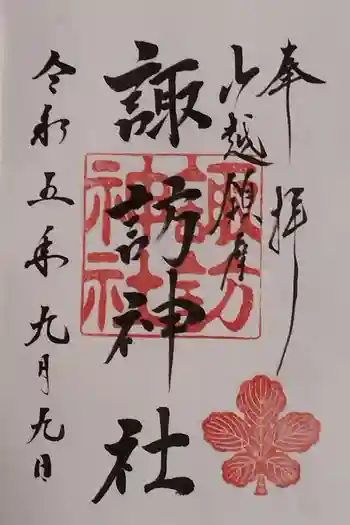 奉拝
山越鎮座
諏訪神社
諏訪神社
令和五年九月九日